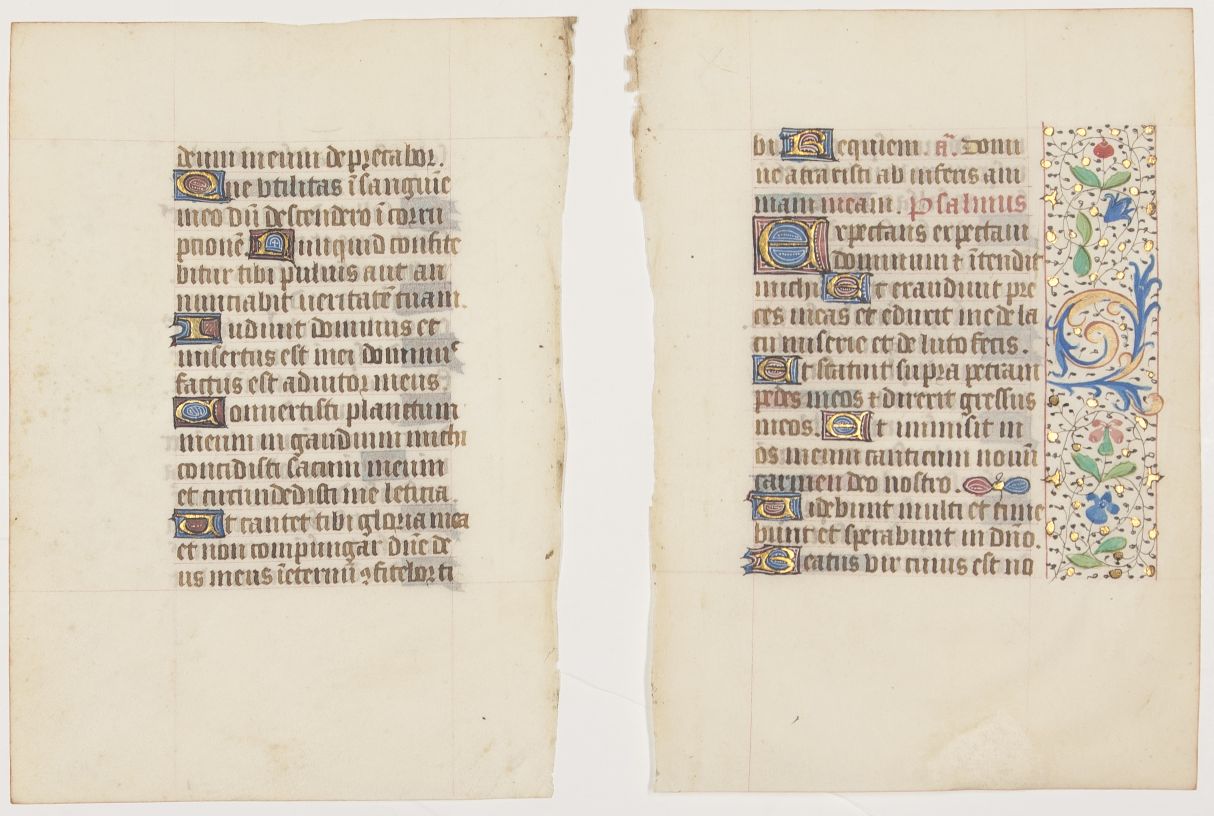 deum meum deprecabor.
Que vtilitas ī sanguīe
meo dū descendero ī corru
ptionē Nunquid confite
bitur tibi puluis aut an
nunciabit ueritatē tuam.
Audiuit dominus et
misertus est mei dominus
factus est adiutor meus.
Conuertisti planctum
meum in gaudium michi
concidisti saccum meum
et circundedisti me leticia.
Vt cantet tibi gloria mea
et non compungar dn̄e de
us meus ī eternū ꝯfitebor ti
bi Requiem. a͠. Domi
ne abstraxisti ab inferis ani
mam meam. Psalmus
Expectans expectaui
dominum ⁊ ītendit
michi Et exaudiuit pre
ces meas et eduxit me de la
cu miserie et de luto fecis.
Et statuit supra petram
pedes meos ⁊ direxit gressus
meos. Et immisit in
os meum canticum nouū
carmen deo nostro.
Uidebunt multi et time
bunt et sperabunt in dn̄o
Beatus vir cuius est no